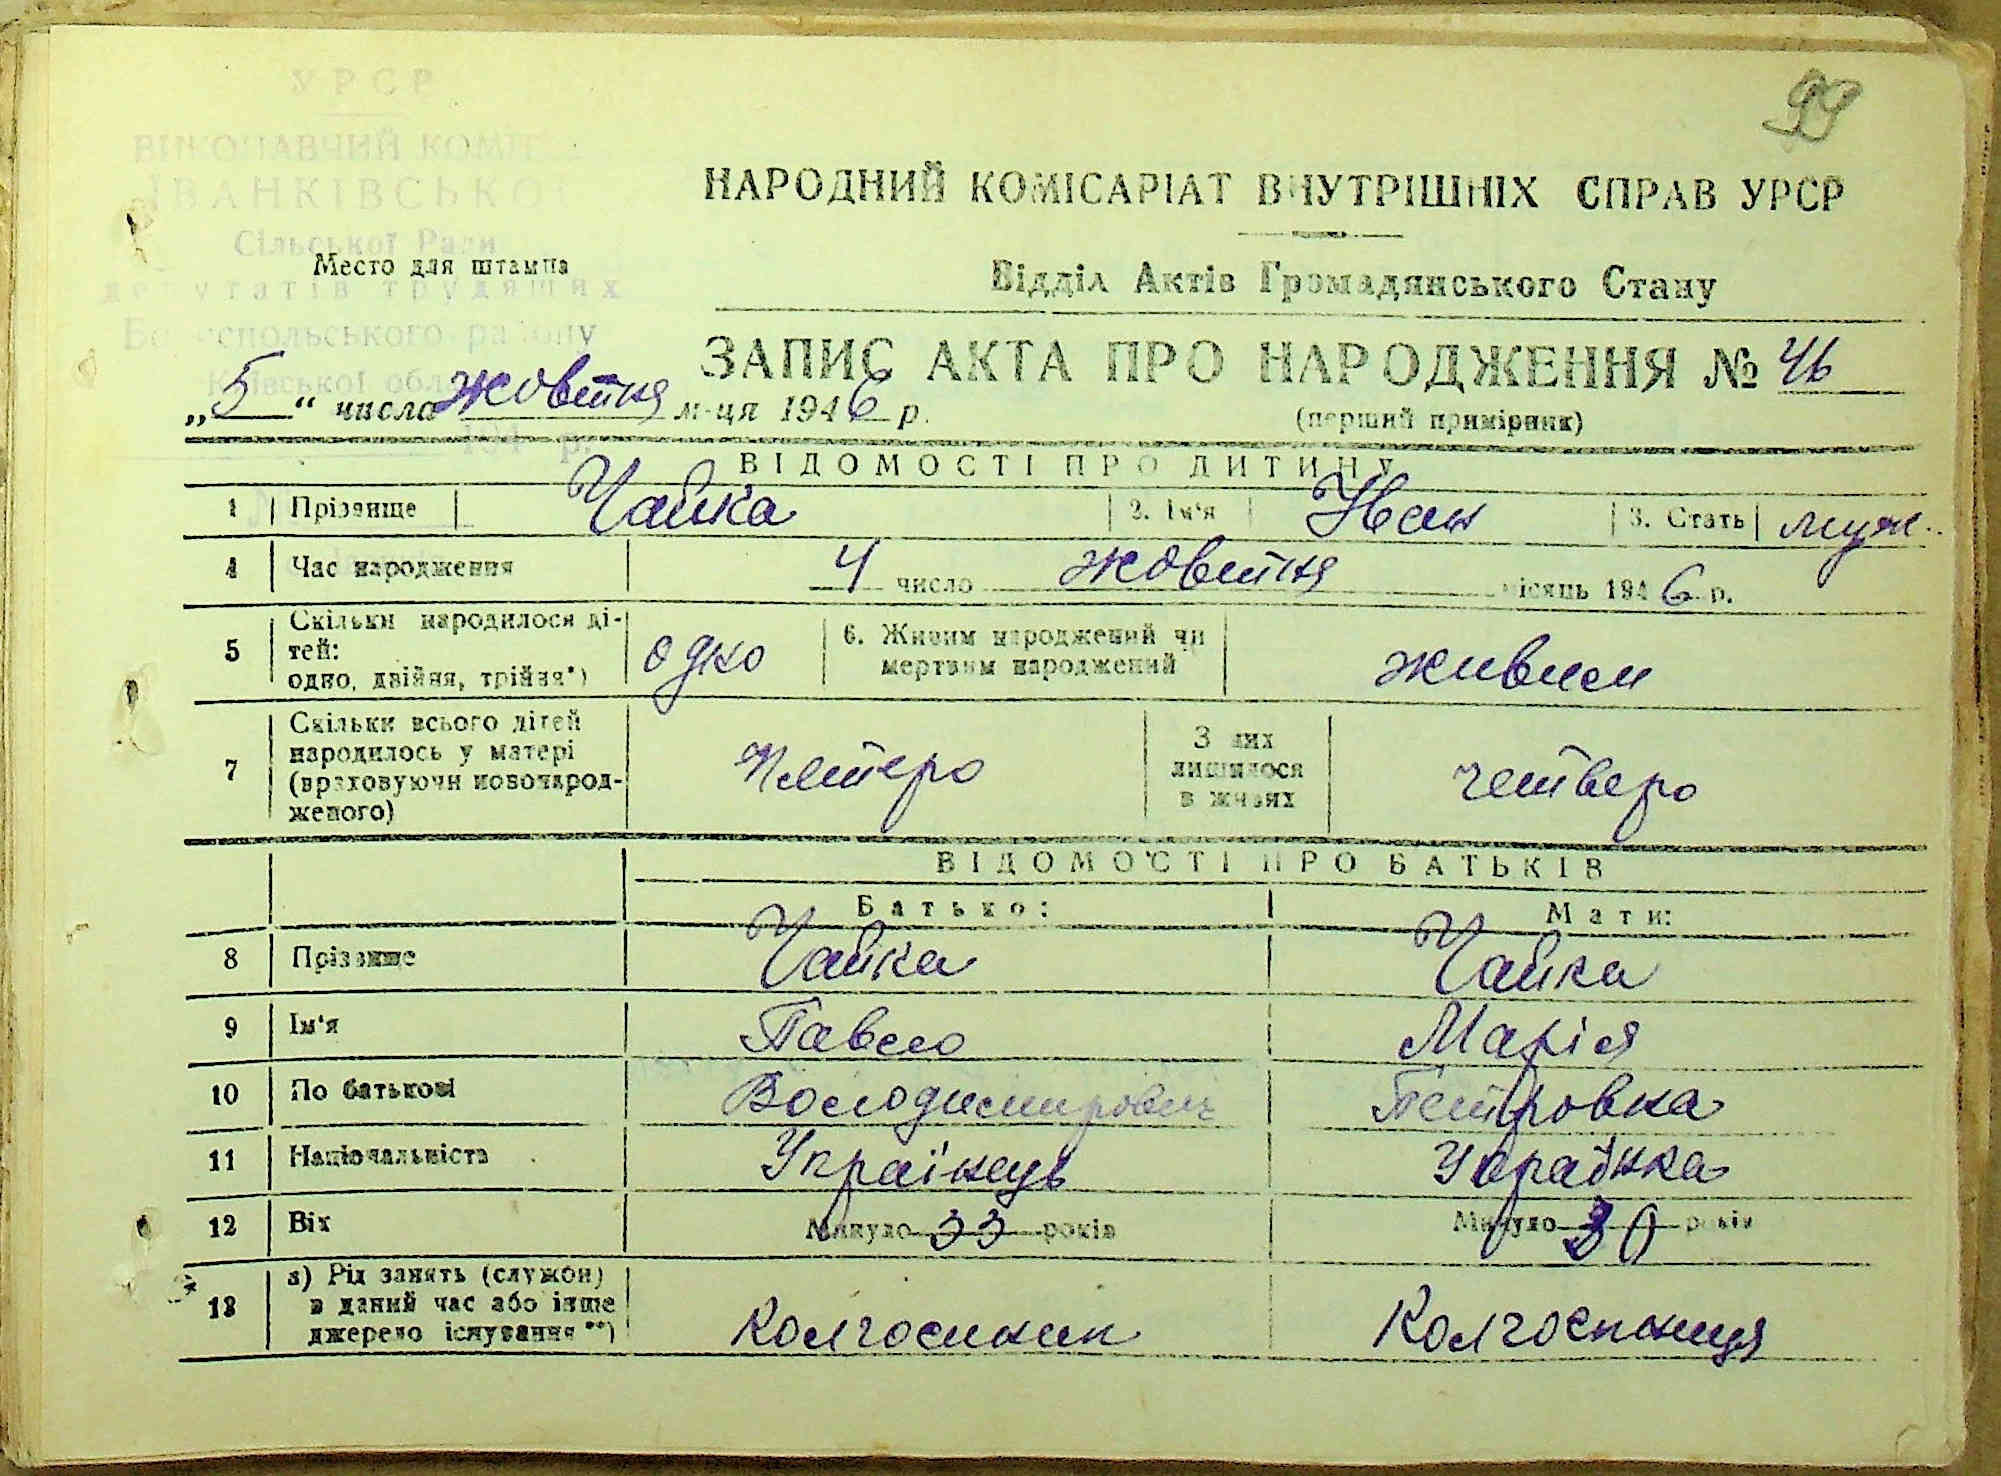 99
УРСР
ВИКОНАВЧИЙ КОМІТ
ІВАНКІВСЬКОЇ
Сільської Ради
депутатів трудящих
Бориспольського району
Київської обл
194 р.
Место для штампа
НАРОДНИЙ КОМІСАРІАТ ВНУТРІШНІХ СПРАВ УРСР
Відділ Актів Громадянського Стану
ЗАПИС АКТА ПРО НАРОДЖЕННЯ № 46
„5“ числа жовтня м-ця 1946 р.
(перший примірник)
ВІДОМОСТІ ПРО ДИТИНУ
1 Прізвище Чайка 2. Ім'я Иван 3. Стать муж.
4 Час народження 4 число жовтня місяць 1946 р.
5 Скільки народилося ді-
тей:
одно, двійня, трійня*) одно
6. Живим народжений чи
мертвим народжений живим
7 Скільки всього дітей
народилось у матері
(враховуючи новонарод-
женого) пятеро
З них
лишилося
в живих четверо
ВІДОМОСТІ ПРО БАТЬКІВ
Батько: Мати:
8 Прізвище Чайка Чайка
9 Ім'я Павло Марія
10 По батькові Володимирович Петровна
11 Національність Українець Українка
12 Вік Минуло 33 років Минуло 30 років
13 а) Рід занять (служби)
в даний час або інше
джерело існування**) Колгоспник Колгоспниця